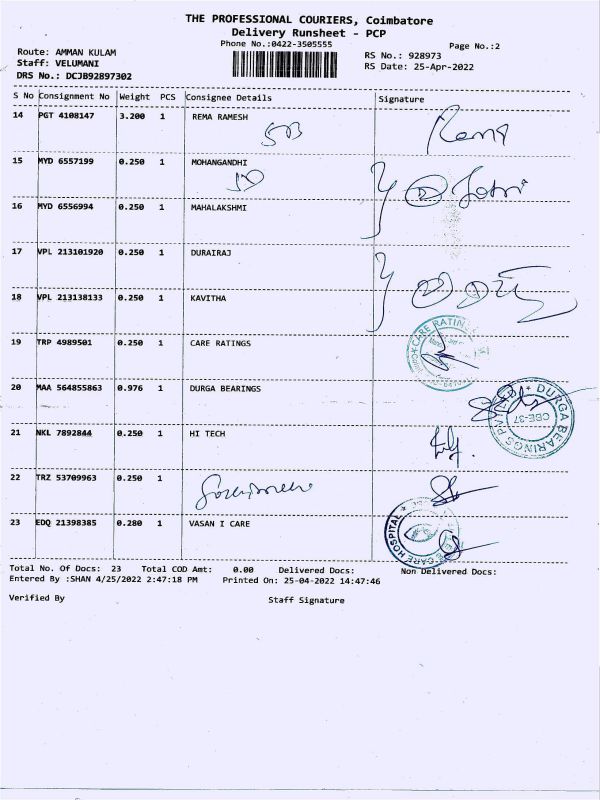 THE PROFESSIONAL COURIERS, Coimbatore
Delivery Runsheet - PCP
Phone No.:0422-3505555
Page No.:2
Route: AMMAN KULAM
RS No.: 928973
Staff: VELUMANI
RS Date: 25-Apr-2022
DRS No.: DCJB92897302
S No Consignment No Weight PCS Consignee Details Signature
14 PGT 4108147 3.200 1 REMA RAMESH Rema
15 MYD 6557199 0.250 1 MOHANGANDHI
16 MYD 6556994 0.250 1 MAHALAKSHMI
17 VPL 213101920 0.250 1 DURAIRAJ
18 VPL 213138133 0.250 1 KAVITHA
19 TRP 4989501 0.250 1 CARE RATINGS
CARE RATINGS
20 MAA 564855863 0.976 1 DURGA BEARINGS
DURGA BEARINGS PVT
CBE-37
21 NKL 7892844 0.250 1 HI TECH
22 TRZ 53709963 0.250 1
23 EDQ 21398385 0.280 1 VASAN I CARE
CARE HOSPITAL
Total No. Of Docs: 23 Total COD Amt: 0.00 Delivered Docs: Non Delivered Docs:
Entered By :SHAN 4/25/2022 2:47:18 PM Printed On: 25-04-2022 14:47:46
Verified By Staff Signature